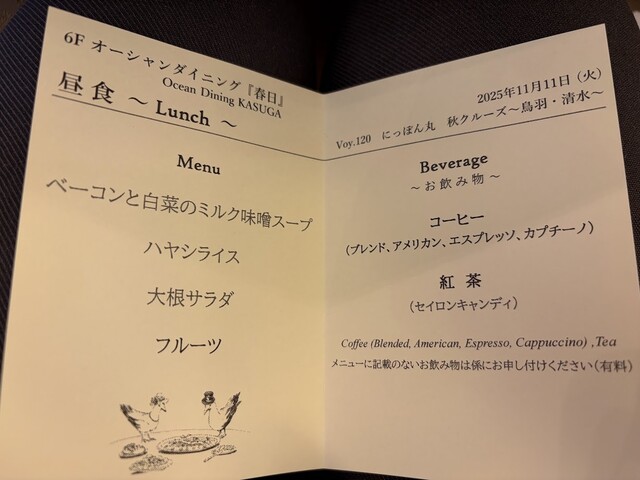 6F オーシャンダイニング『春日』
Ocean Dining KASUGA
昼食 ～ Lunch ～
Menu
ベーコンと白菜のミルク味噌スープ
ハヤシライス
大根サラダ
フルーツ
2025年11月11日（火）
Voy.120 にっぽん丸 秋クルーズ～鳥羽・清水～
Beverage
～お飲み物～
コーヒー
（ブレンド、アメリカン、エスプレッソ、カプチーノ）
紅茶
（セイロンキャンディ）
Coffee (Blended, American, Espresso, Cappuccino) ,Tea
メニューに記載のないお飲み物は係にお申し付けください（有料）